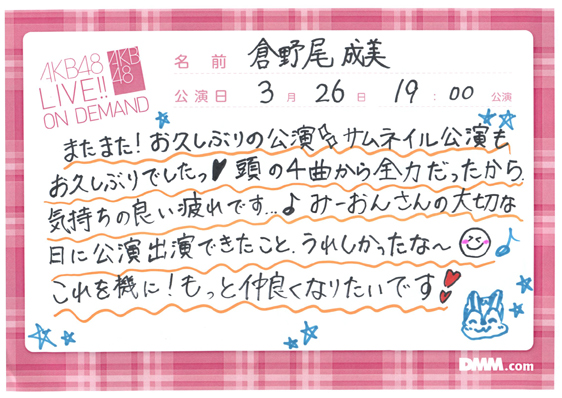 AKB48
LIVE!!
ON DEMAND
AKB
48
名前 倉野尾 成美
公演日 3月 26日 19:00 公演
またまた! お久しぶりの公演 サムネイル公演も
お久しぶりでしたっ♥ 頭の4曲から全力だったから
気持ちの良い疲れです...♪ みーおんさんの大切な
日に公演出演できたこと、うれしかったな〜 ♪
これを機に!もっと仲良くなりたいです
DMM.com